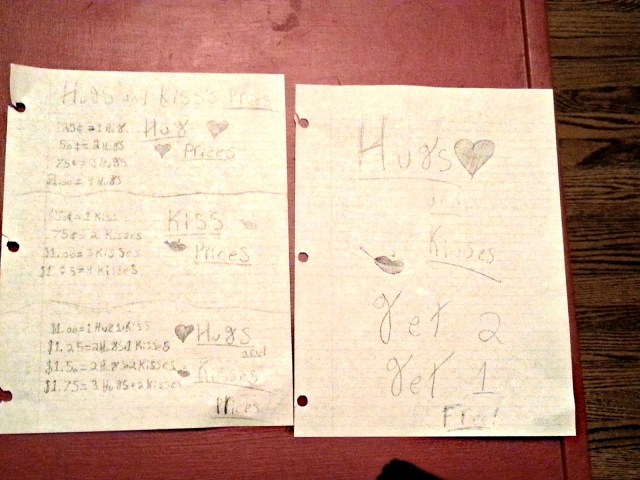 Hugs and Kiss's Prices
25¢ = 1 Hug
50¢ = 2 Hugs
75¢ = 3 Hugs
$1.00 = 4 Hugs
Hug
Prices
50¢ = 1 Kiss
75¢ = 2 Kisses
$1.00 = 3 Kisses
$1.25 = 4 Kisses
Kiss
Prices
$1.00 = 1 Hug 1 Kiss
$1.25 = 2 Hugs 1 Kisses
$1.50 = 2 Hugs 2 Kisses
$1.75 = 3 Hugs + 2 Kisses
Hugs
and
Kisses
Prices
Hugs
and
Kisses
Get 2
Get 1
Free!